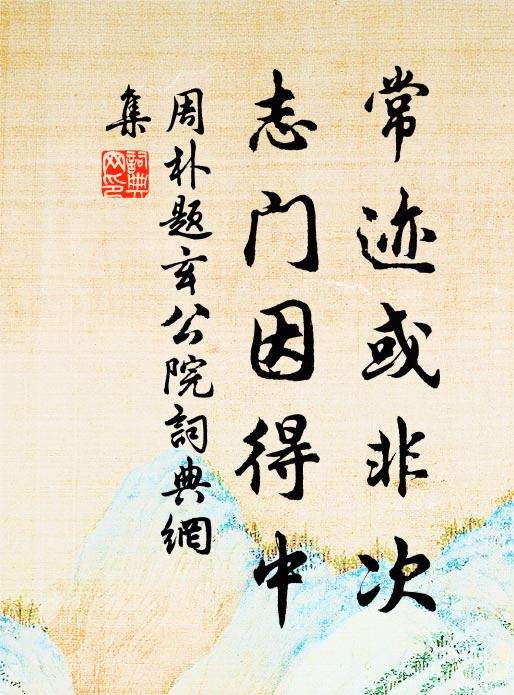 常迹或非次
志门因得中
周朴题玄公院詞典網
集
詞典网印